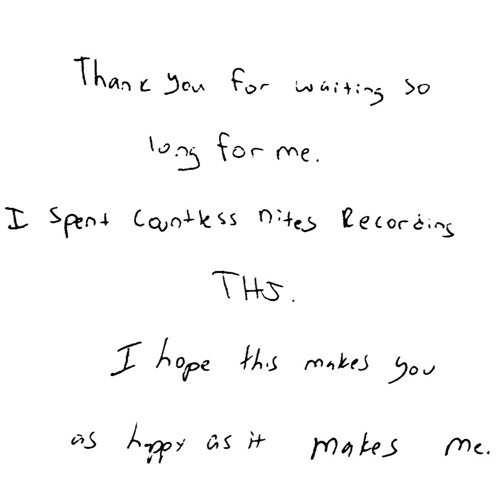 Thank you for waiting so
long for me.
I spent countless nites Recording
THS.
I hope this makes you
as happy as it makes me.